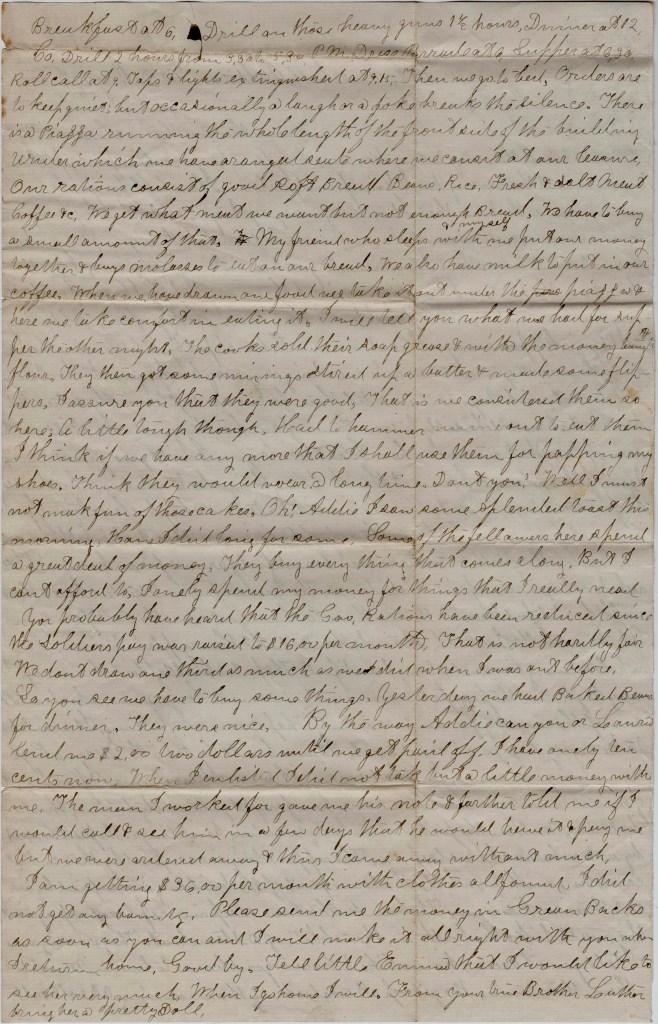 Breakfast at 6, Drill on those heavy guns 1½ hours, Dinner at 12,
Co. Drill 2 hours from 3,30 to 5,30 P.M. Dress Parrade at 6, Supper at 6,30
Roll call at 9, Taps & lights extinguished at 9.15, Then we go to bed, Orders are
to keep quiet; but occasionally a laugh or a joke breaks the silence. There
is a Piazza running the whole length of the front side of the building
under which we have arranged seats where we can sit at our leasure,
Our rations consist of good soft Bread Beans, Rice, Fresh & salt Meat
Coffee &c, We get what meat we want but not enough Bread, We have to buy
a small amount of that, My friend who sleeps with me & myself put our money
together & buys molasses to eat on our bread, We also have milk to put in our
coffee, When we have drawn our food we take it out under the piazza &
here we take comfort in eating it, I will tell you what we had for sup-
per the other night, The cooks sold their soap grease & with the money
flour, They then got some stired up a batter & made some flip-
pers, I assure you that they were good, That is we considered them so
here; A little tough though, Had to hammer out to eat them
I think if we have any more that I shall use them for tapping my
shoes, Think they would wear a long time, Dont you! Well I must
not mak fun of those cakes, Oh! Addie I saw some splended toast this
morning, How I did long for some, Some of the fellowers here spend
a great deal of money, They buy every thing that comes along, But I
cant afford to, I onely spend my money for things that I really need
You probably have heard that the Gov, Rations have been reduced since
the soldiers pay was raised to $16,00 per month, That is not hardly fair
We dont draw one third as much as we did when I was out before,
So you see we have to buy some things, Yesterday we had Baked Beans
for dinner, They were nice, By the way Addie can you or
send me $2,00 two dollars until we get paid off, I have onely ten
cents now, When I enlisted I did not take but a little money with
me, The man I worked for gave me his note & farther told me if I
would call & see him in a few days that he would have it & pay me
but we were ordered away & thus I came away without much,
I am getting $36,00 per month with clothes all found, I did
not get any bounty, Please send me the money in Green Backs
as soon as you can and I will make it all right with you when
I return home, Good by, Tell little Emma that I would like to
see her very much When I go home I will From your true Brother Luther
bring her a pretty Doll,